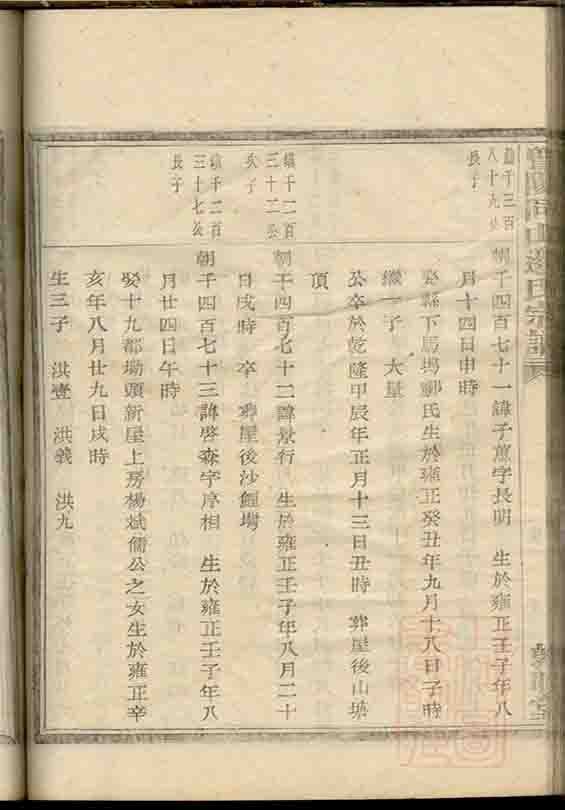 鎮千三百
八十九公
長子
朝千四百七十一諱子蔥字長明 生於雍正壬子年八
月十四日申時
娶縣下馬塢酈氏生於雍正癸丑年九月十八日子時
繼一子 大量
公卒於乾隆甲辰年正月十三日丑時 葬屋後山塽
頂
鎮千二百
三十二公
次子
朝千四百七十二諱景行 生於雍正壬子年八月二十
日戌時 卒 葬屋後沙鯉塢
鎮千二百
三十七公
長子
朝千四百七十三諱啓森字序相 生於雍正壬子年八
月廿四日午時
娶十九都塢頭新屋上房楊斌儒公之女生於雍正辛
亥年八月廿九日戌時
生三子 洪壹 洪義 洪九